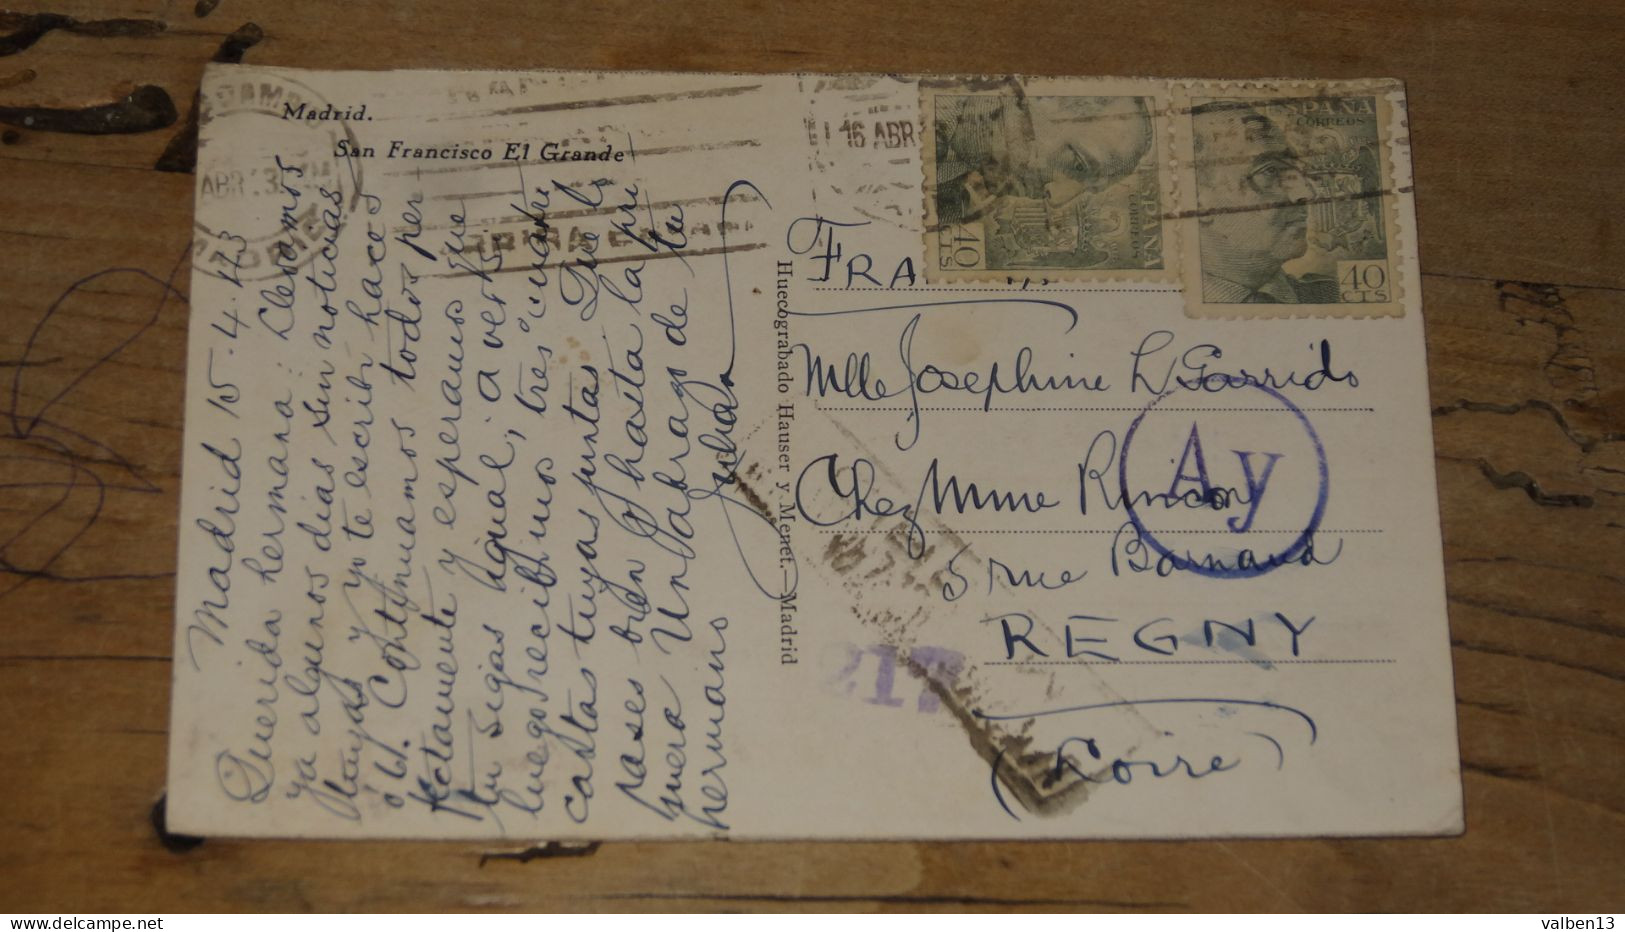 Madrid.
San Francisco El Grande
16 ABR
ARRIBA ESPAÑA
ESPAÑA
CORREOS
40
CTS
ESPAÑA
CORREOS
40
CTS
Madrid 15-4-43
Querida hermana: Llevamos
ya algunos dias sin noticias
tuyas y yo te escribi hace 5
ó 6. Continuamos todos per
fectamente y esperamos que
tu sigas igual, a ver si
luego recibimos tres o cuatro
cartas tuyas juntas. Que lo
pases bien y hasta la pri
mera Un abrazo de tu
hermano
Julian
Huecograbado Hauser y Menet.-Madrid
FRANCIA
Mlle Josephine L Garrido
Chez Mme Rincon
5 rue Barnaud
REGNY
(Loire)
Ay
217
valben13